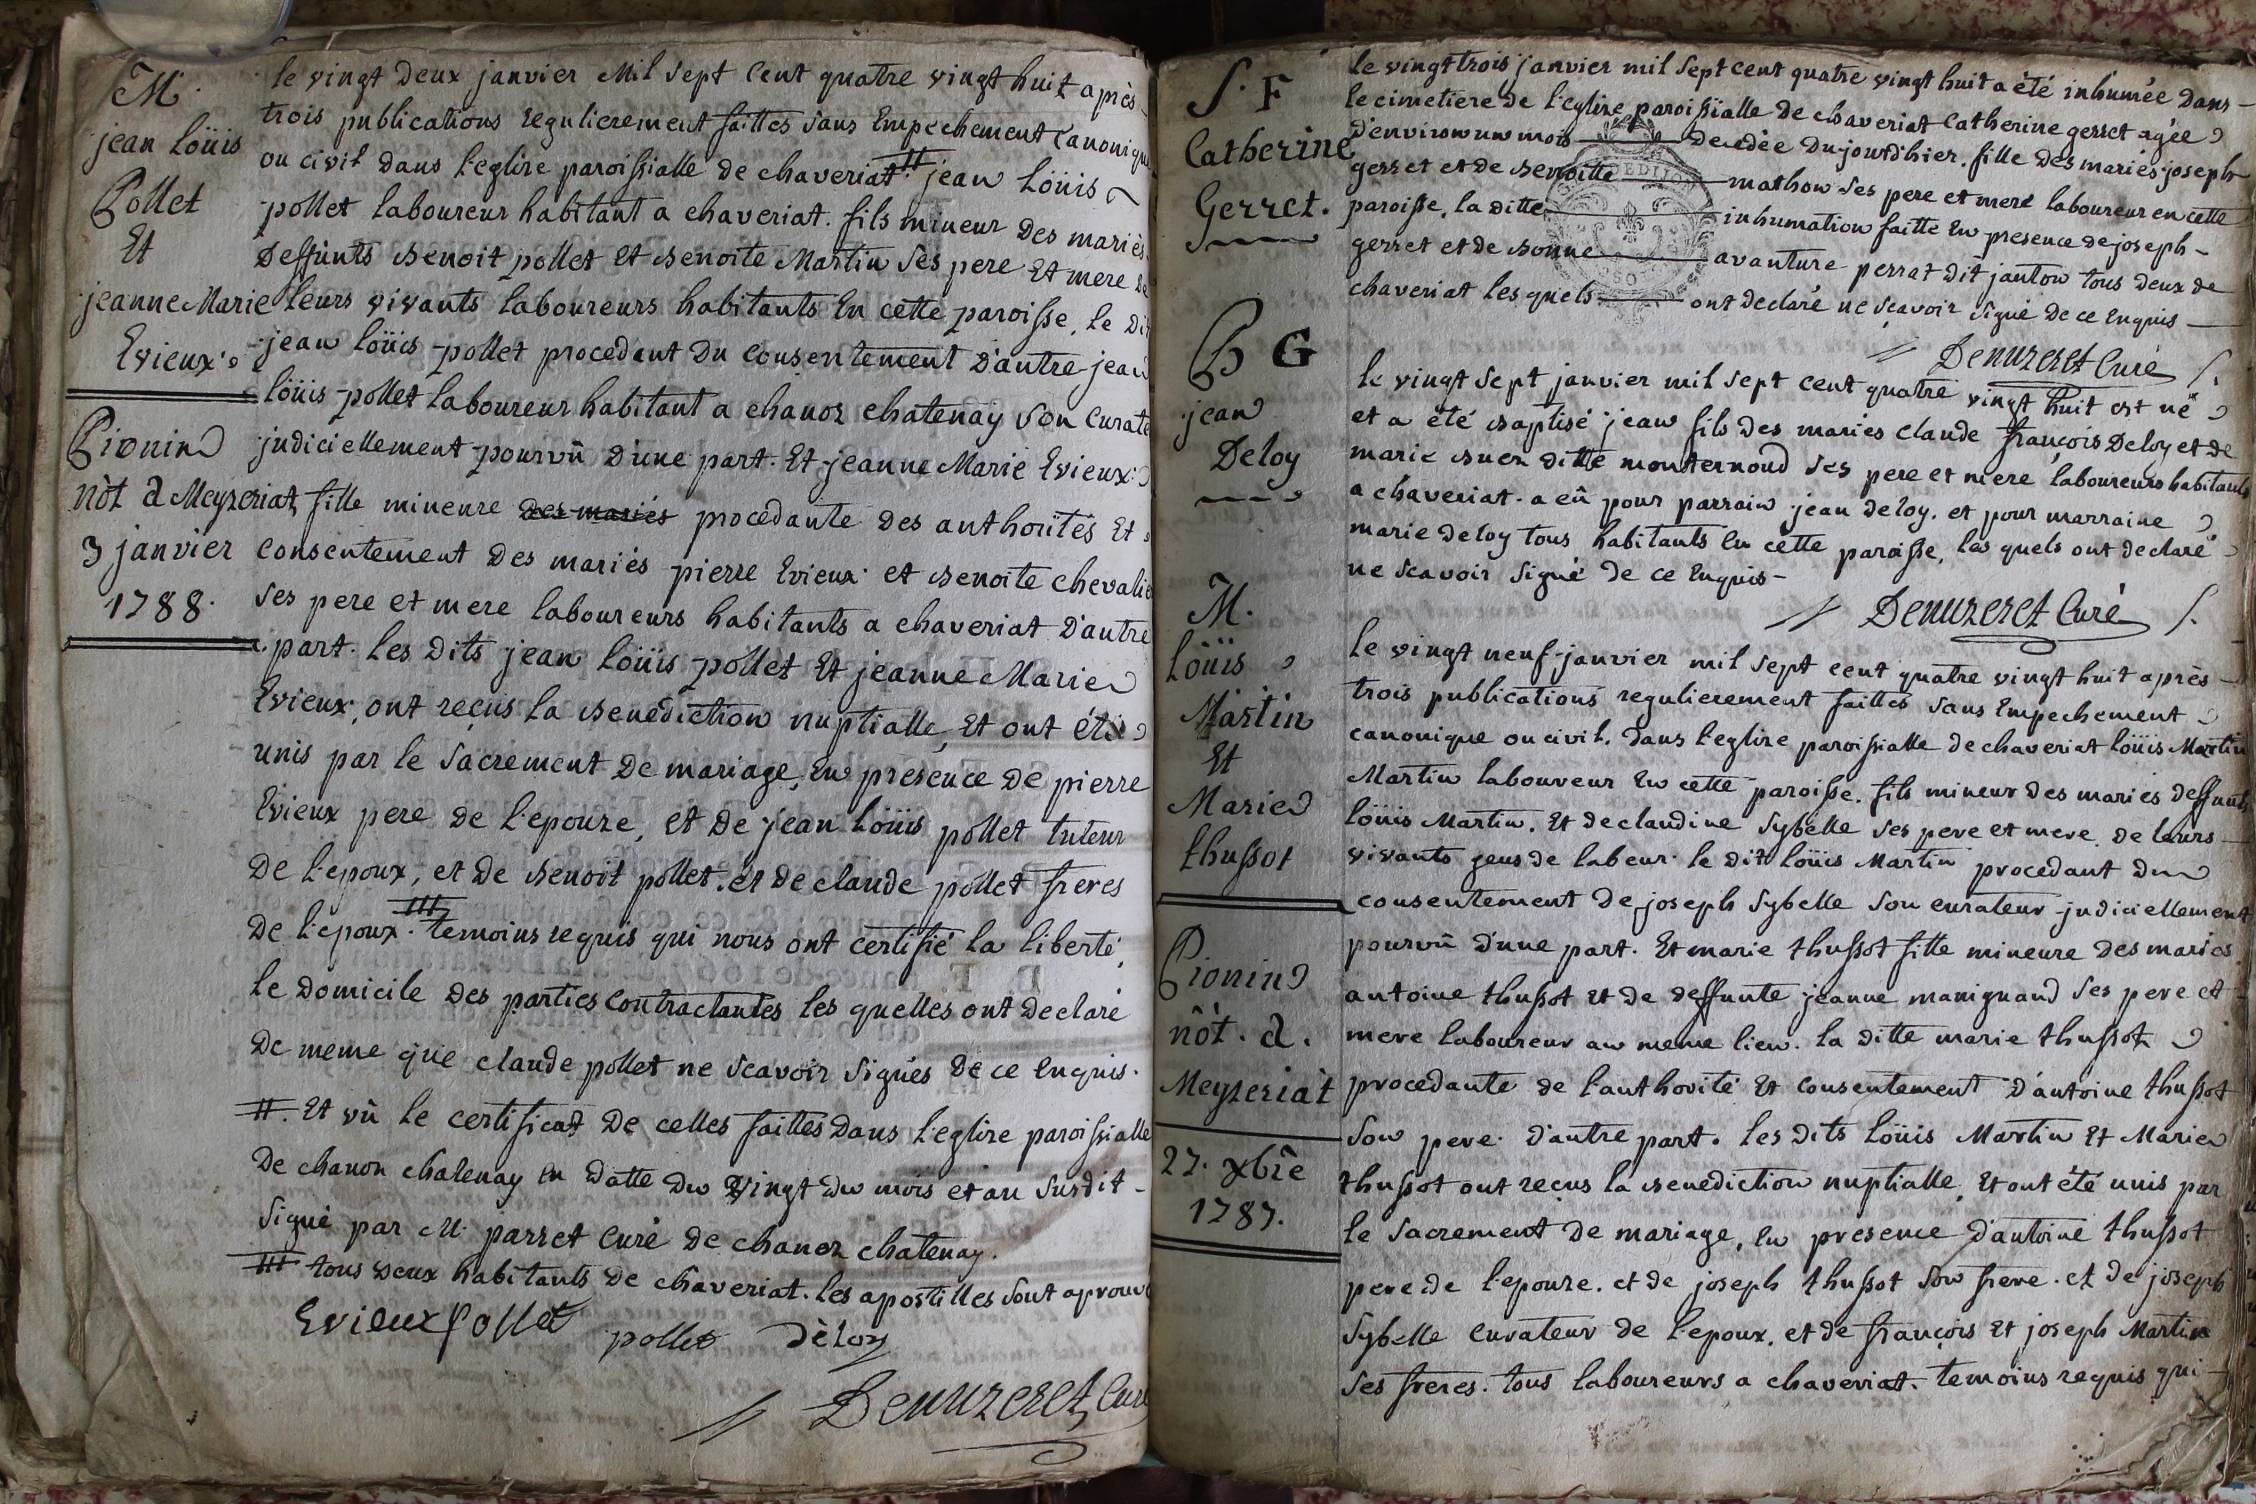 M.
jean Löüis
Pollet
Et
jeanne Marie
Evieux.
Pionin
nôt a Meyzeriat
3 janvier
1788.
le vingt deux janvier Mil sept Cent quatre vingt huit après
trois publications regulierement faittes sans Empechement Canonique
ou civil dans l'eglise paroissialle de chaveriat. # jean Löüis
pollet laboureur habitant a chaveriat. fils mineur des mariés
deffunts benoit pollet Et benoite Martin ses pere Et mere de
leurs vivants laboureurs habitants En cette paroisse, le dit
jean Löüis pollet procedant du Consentement d'autre jean
Löüis pollet laboureur habitant a chanoz chatenay son Curate
judiciellement pourvû d'une part. Et jeanne Marie Evieux.
fille mineure des mariés procedante des authorités Et
Consentement des mariés pierre Evieux et benoite chevalie
ses pere et mere laboureurs habitants a chaveriat d'autre
part. les dits jean Löüis pollet Et jeanne Marie
Evieux, ont reçus la benediction nuptialle, Et ont été
unis par le sacrement de mariage, en presence de pierre
Evieux pere de l'epouze, et de jean Löüis pollet tuteur
de l'epoux, et de benoit pollet. et de claude pollet freres
de l'epoux. # temoins requis qui nous ont certifié la liberté,
le domicile des parties Contractantes les quelles ont declaré
de meme que claude pollet ne scavoir signés de ce Enquis.
#. Et vû le certificat de celles faittes dans l'eglise paroissialle
de chanon chatenay en datte du vingt du mois et an susdit
signé par M. parret Curé de chanoz chatenay.
# tous deux habitants de chaveriat. les apostilles sont aprouv
Evieux pollet pollet Déloy
Denuzeret Curé
S. F
Catherine
Gerret.
B G
jean
Deloy
M.
Löüis
Martin
Et
Marie
thussot
Pionin
nôt. a.
Meyzeriat
27. xbre
1787.
le vingt trois janvier mil sept cent quatre vingt huit a été inhumée dans
le cimetiere de l'eglise paroissialle de chaveriat Catherine gerret agée
d'environ un mois decedée du jourd'hier. fille des mariés joseph
gerret et de benoitte mathon ses pere et mere laboureur en cette
paroisse, la ditte inhumation faitte En presence de joseph
gerret et de bonne avanture perrat dit janton tous deux de
chaveriat les quels ont declaré ne scavoir signé de ce Enquis
Denuzeret Curé
le vingt sept janvier mil sept cent quatre vingt huit est né
et a été baptisé jean fils des mariés claude françois Deloy et de
marie buez ditte monternoud ses pere et mere laboureurs habitants
a chaveriat. a eû pour parrain jean deloy. et pour marraine
marie deloy tous habitants En cette paroisse, les quels ont declaré
ne scavoir signé de ce Enquis
Denuzeret Curé
le vingt neuf janvier mil sept cent quatre vingt huit après
trois publications regulierement faittes sans Empechement
canonique ou civil. dans l'eglise paroissialle de chaveriat Löüis Martin
Martin laboureur En cette paroisse. fils mineur des mariés deffunts
Löüis Martin. Et de claudine sybelle ses pere et mere de leurs
vivants gens de labeur. le dit Löüis Martin procedant du
consentement de joseph sybelle son curateur judiciellement
pourvû d'une part. Et marie thussot fille mineure des mariés
antoine thussot et de deffunte jeanne manignand ses pere et
mere laboureur au meme lieu. la ditte marie thussot
procedante de l'authorité Et Consentement d'antoine thussot
son pere. d'autre part. les dits Löüis Martin Et Marie
thussot ont reçus la benediction nuptialle, Et ont été unis par
le sacrement de mariage, En presence d'antoine thussot
pere de l'epouze. et de joseph thussot son frere. et de joseph
sybelle Curateur de l'epoux. et de françois Et joseph Martin
ses freres. tous laboureurs a chaveriat. temoins requis qui